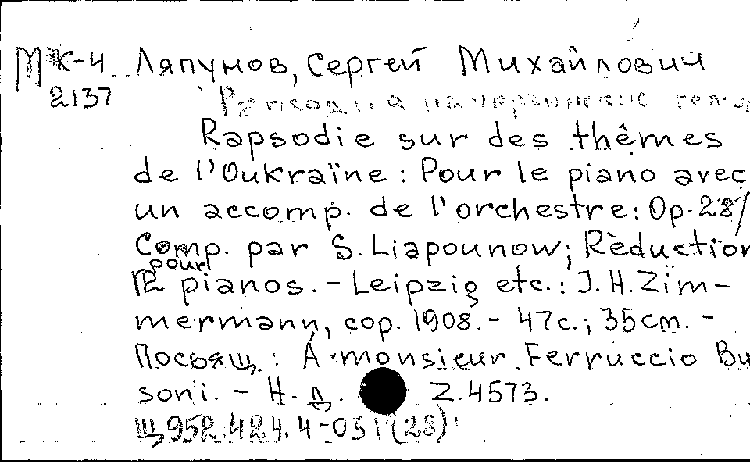 МК-4 Ляпунов, Сергей Михайлович
2137
Rapsodie sur des thêmes
de l'Oukraïne: Pour le piano avec
un accomp. de l'orchestre: Op. 28/
Comp. par S. Liapounow; Rèduction
pour 2 pianos. - Leipzig etc.: J.H. Zim-
mermann, cop. 1908. - 47с.; 35cm. -
Посвящ.: A monsieur Ferruccio Bu
soni. - Н. д. Z. 4573.
Щ952.424.4-051(28)